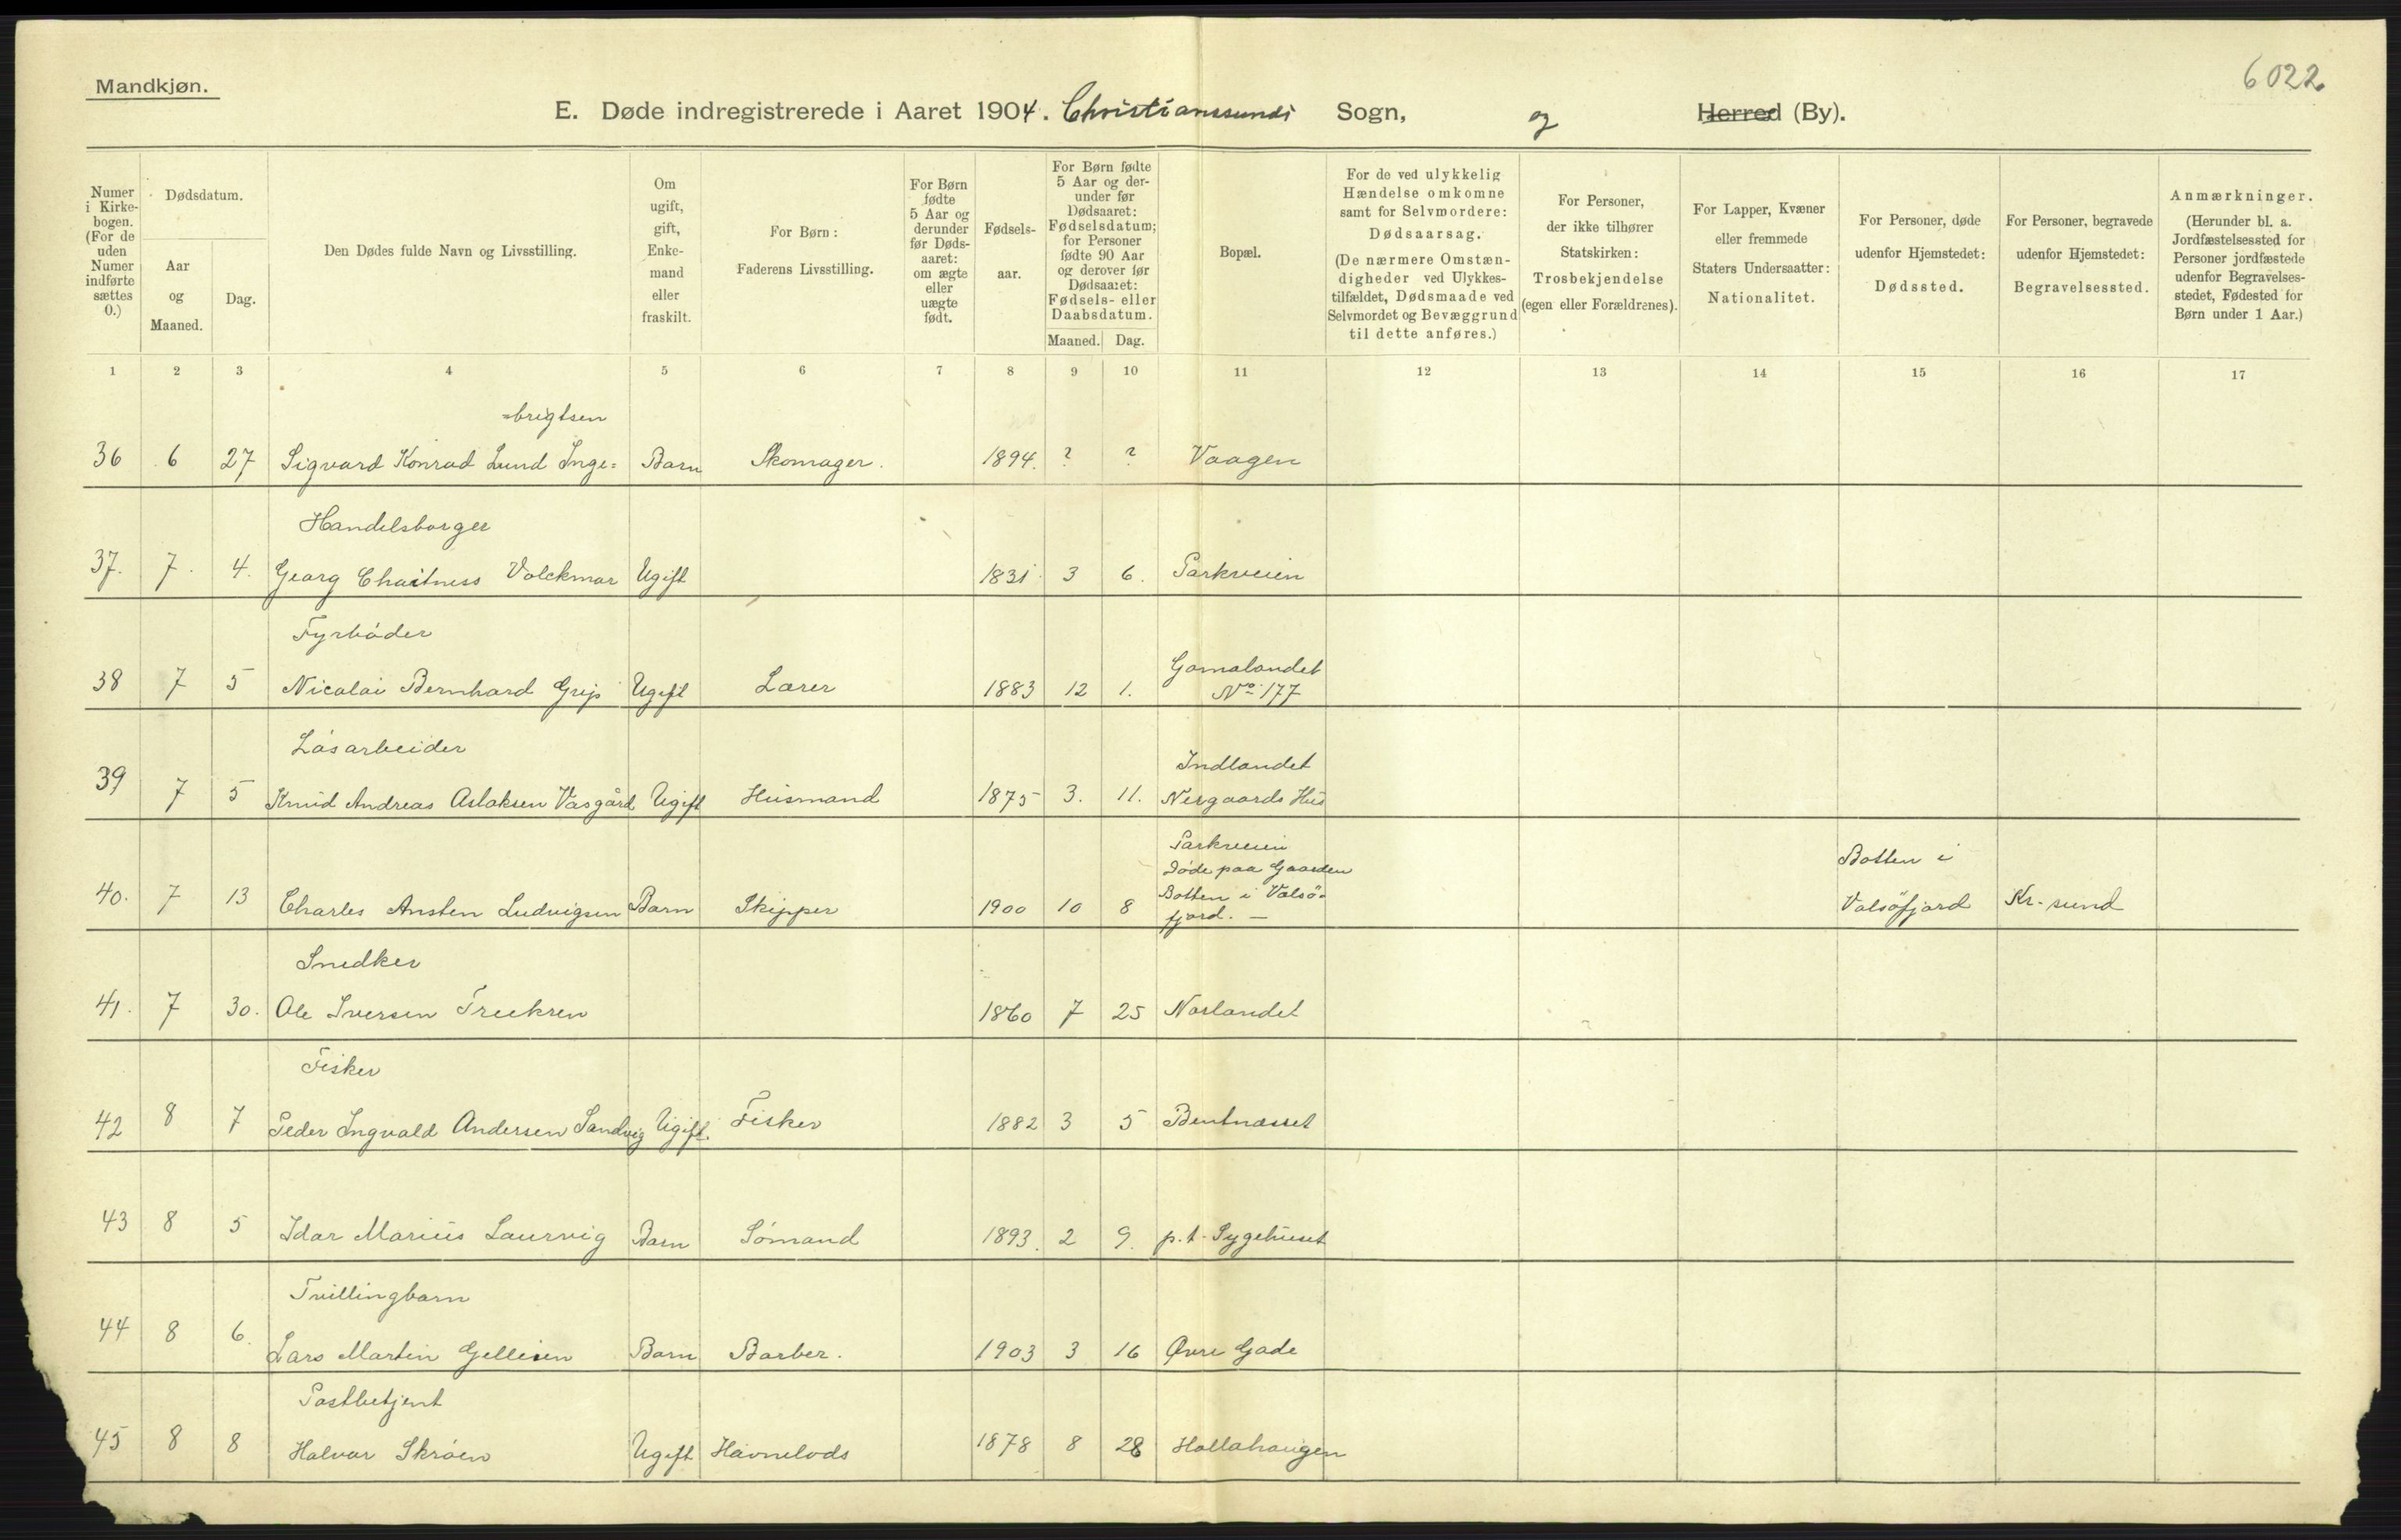 Mandkjøn.
6022
E. Døde indregistrerede i Aaret 1904. Christianssunds Sogn, og Herred (By).
Numer i Kirkebogen. (For de uden Numer indførte sættes 0.)
Dødsdatum.
Aar og Maaned.
Dag.
Den Dødes fulde Navn og Livsstilling.
Om ugift, gift, Enkemand eller fraskilt.
For Børn: Faderens Livsstilling.
For Børn fødte 5 Aar og derunder før Dødsaaret: om ægte eller uægte født.
Fødselsaar.
For Børn fødte 5 Aar og derunder før Dødsaaret: Fødselsdatum; for Personer fødte 90 Aar og derover før Dødsaaret: Fødsels- eller Daabsdatum.
Maaned. Dag.
Bopæl.
For de ved ulykkelig Hændelse omkomne samt for Selvmordere: Dødsaarsag. (De nærmere Omstændigheder ved Ulykkestilfældet, Dødsmaade ved Selvmordet og Bevæggrund til dette anføres.)
For Personer, der ikke tilhører Statskirken: Trosbekjendelse (egen eller Forældrenes).
For Lapper, Kvæner eller fremmede Staters Undersaatter: Nationalitet.
For Personer, døde udenfor Hjemstedet: Dødssted.
For Personer, begravede udenfor Hjemstedet: Begravelsessted.
Anmærkninger. (Herunder bl. a. Jordfæstelsessted for Personer jordfæstede udenfor Begravelsesstedet, Fødested for Børn under 1 Aar.)
1 2 3 4 5 6 7 8 9 10 11 12 13 14 15 16 17
=brigtsen
36 6 27 Sigvard Konrad Lund Inge= Barn Skomager. 1894. ? ? Vaagen
Handelsborger
37. 7. 4. Georg Chaitness Volckmar Ugift 1831 3 6. Parkveien
Fyrbøder
Gomalandet
38 7 5 Nicolai Bernhard Grip Ugift Lærer 1883 12 1. No 177
Løsarbeider
Indlandet
39 7 5 Knud Andreas Aslaksen Vasgård Ugift Husmand 1875 3. 11. Nergaards Hus
Parkveien
Døde paa Gaarden
Botten i
40. 7 13 Charles Ansten Ludvigsen Barn Skipper 1900 10 8 Botten i Valsö-
fjord. —
Valsöfjord Kr.sund
Snedker
41. 7 30. Ole Iversen Treekren 1860 7 25 Norlandet
Fisker
42 8 7 Peder Ingvald Andersen Sandvig Ugift. Fisker 1882 3 5 Bentnæsset
43 8 5 Idar Marius Laurvig Barn Sømand 1893. 2 9. p.t. Sygehuset
Tvillingbarn
44 8 6. Lars Martin Gellein Barn Barber. 1903 3 16 Øvre Gade
Postbetjent
45 8 8 Halvar Skrøen Ugift Havnelods 1878 8 28 Hallahaugen